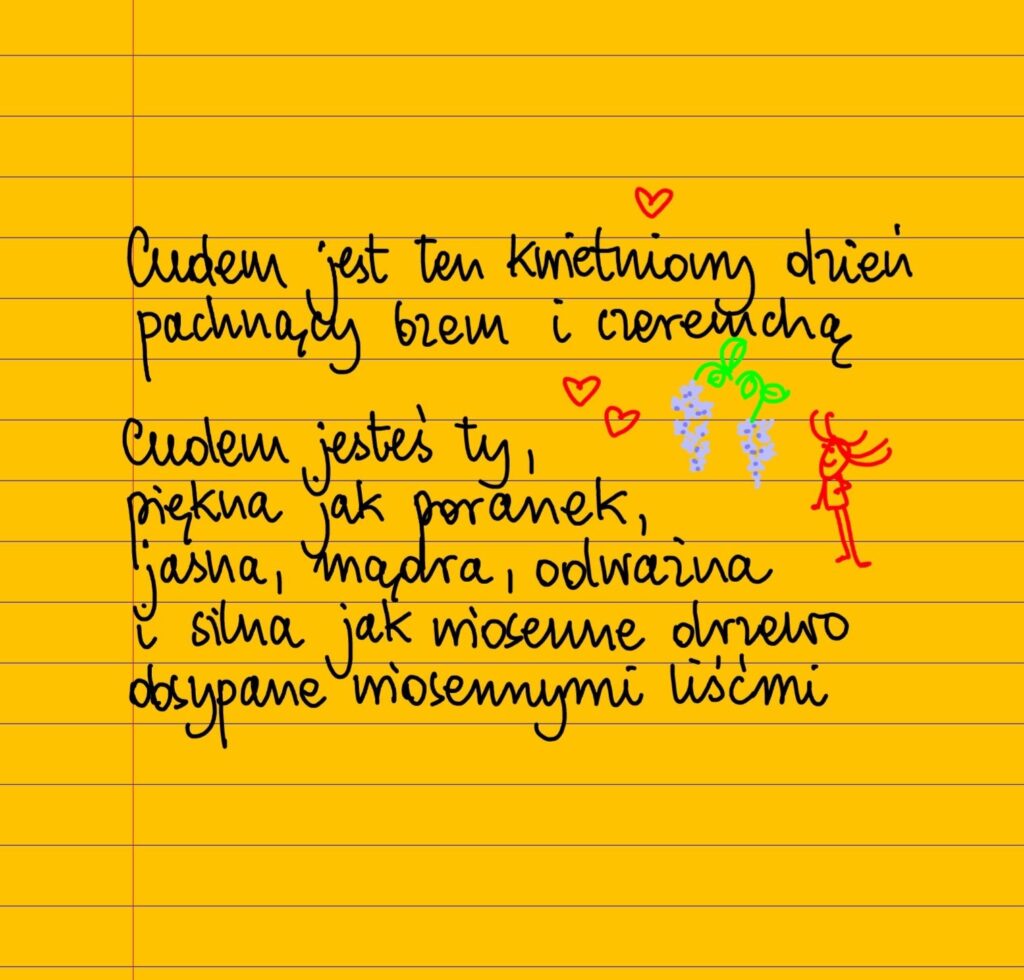 Cudem jest ten kwietniowy dzień
pachnący bzem i czeremchą
Cudem jesteś ty,
piękna jak poranek,
jasna, mądra, odważna
i silna jak wiosenne drzewo
obsypane wiosennymi liśćmi